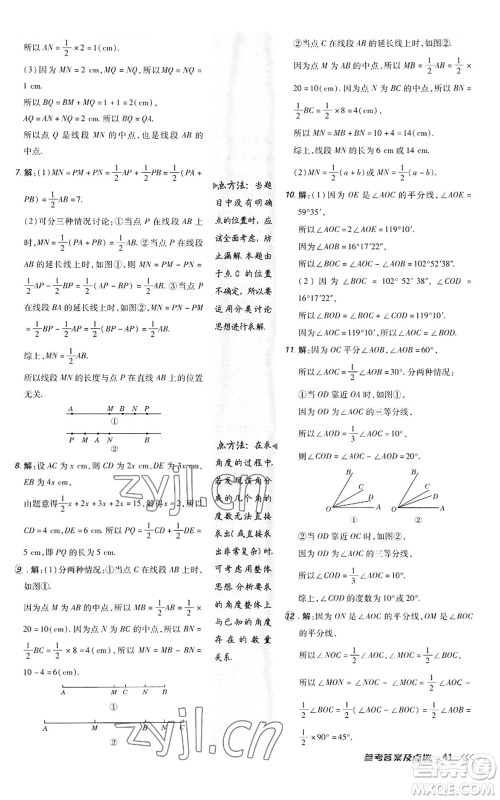 所以 AN = 1/2 × 2 = 1(cm).
(3)因为 MN = 2 cm,MQ = NQ,所以 MQ = NQ =
1 cm.
所以 BQ = BM + MQ = 1 + 1 = 2(cm),
AQ = AN + NQ = 2 cm. 所以 BQ = QA.
所以点 Q 是线段 MN 的中点,也是线段 AB 的
中点.
7. 解:(1)MN = PM + PN = 1/2 PA + 1/2 PB = 1/2 (PA +
PB) = 1/2 AB = 7.
(2)可分三种情况讨论:①当点 P 在线段 AB
上时,MN = 1/2 (PA + PB) = 1/2 AB. ②当点 P 在线段
AB 的延长线上时,如图①,所以 MN = PM − PN =
1/2 AP − 1/2 BP = 1/2 (AP − BP) = 1/2 AB. ③当点 P 在线段
BA 的延长线上时,如图②,所以 MN = PN − PM =
1/2 BP − 1/2 AP = 1/2 (BP − AP) = 1/2 AB.
综上,MN = 1/2 AB.
所以线段 MN 的长度与点 P 在直线 AB 上的位置
无关.
A M B N P
①
P M A N B
②
8. 解:设 AC 为 x cm,则 CD 为 2x cm,DE 为 3x cm,
EB 为 4x cm,
由题意得 1/2 x + 2x + 3x + 2x = 15,解得 x = 2,所以
CD = 4 cm,DE = 6 cm. 所以 PQ = 1/2 CD + 1/2 DE =
5 cm,即 PQ 的长为 5 cm.
9. 解:(1)分两种情况:①当点 C 在线段 AB 上时,
如图①.
因为点 M 为 AB 的中点,所以 BM = 1/2 AB = 1/2 ×
20 = 10(cm). 因为点 N 为 BC 的中点,所以 BN =
1/2 BC = 1/2 × 8 = 4(cm). 所以 MN = BM − BN =
10 − 4 = 6(cm).
A M C N B
①
A M B N C
②
点方法:当题
目中没有明确
点的位置时,
应该全面考虑,防
止漏解.本题中
由于点 C 的位置
不确定,所以要
运用分类讨论
思想进行求解.
点方法:在求
角度的过程中,
若发现组成
成的几个角的
度数无法直接
求出(或直接求
出非常复杂)时,
可考虑用整体
思想,分析要求
的角度整体上
与已知的角度
存在的数量
关系.
②当点 C 在线段 AB 的延长线上时,如图②.
因为点 M 为 AB 的中点,所以 BM = 1/2 AB = 1/2 ×
20 = 10(cm). 因为点 N 为 BC 的中点,所以 BN =
1/2 BC = 1/2 × 8 = 4(cm).
所以 MN = BM + BN = 10 + 4 = 14(cm).
综上,线段 MN 的长度为 6 cm 或 14 cm.
(2)MN = 1/2 (a + b) 或 MN = 1/2 (a − b).
10. 解:(1)因为 OE 是∠AOC 的平分线,∠AOE =
59°35′,
所以∠AOC = 2∠AOE = 119°10′.
因为∠AOB = 16°17′22″,
所以∠BOC = ∠AOC − ∠AOB = 102°52′38″.
(2)因为∠BOC = 102°52′38″,∠AOB =
16°17′22″,
所以∠AOC = ∠BOC + ∠AOB = 119°10′.
因为∠AOC = ∠COD,所以∠COD = 119°10′.
11. 解:因为 OC 平分∠AOB,∠AOB = 60°,
所以∠AOC = 1/2 ∠AOB = 30°. 分两种情况:
①当 OD 靠近 OA 时,如图①,
因为 OD 为∠AOC 的三等分线,
所以∠AOD = 1/3 ∠AOC = 10°.
②当 OD 靠近 OC 时,如图②,
因为 OD 为∠AOC 的三等分线,
所以∠COD = 1/3 ∠AOC = 10°.
所以∠AOD = ∠AOC − ∠COD = 20°.
B C D O A
①
B C D O A
②
综上,∠AOD 的度数为 10° 或 20°.
12. 解:因为 ON 是∠AOC 的平分线,OM 是∠BOC
的平分线,
所以∠NOC = 1/2 ∠AOC,∠MOC = 1/2 ∠BOC,
所以∠MON = ∠MOC − ∠NOC = 1/2 ∠BOC −
1/2 ∠AOC = 1/2 (∠BOC − ∠AOC) = 1/2 ∠AOB =
1/2 × 90° = 45°.
参考答案及点拨 41
zyjl.cn
zyjl.cn